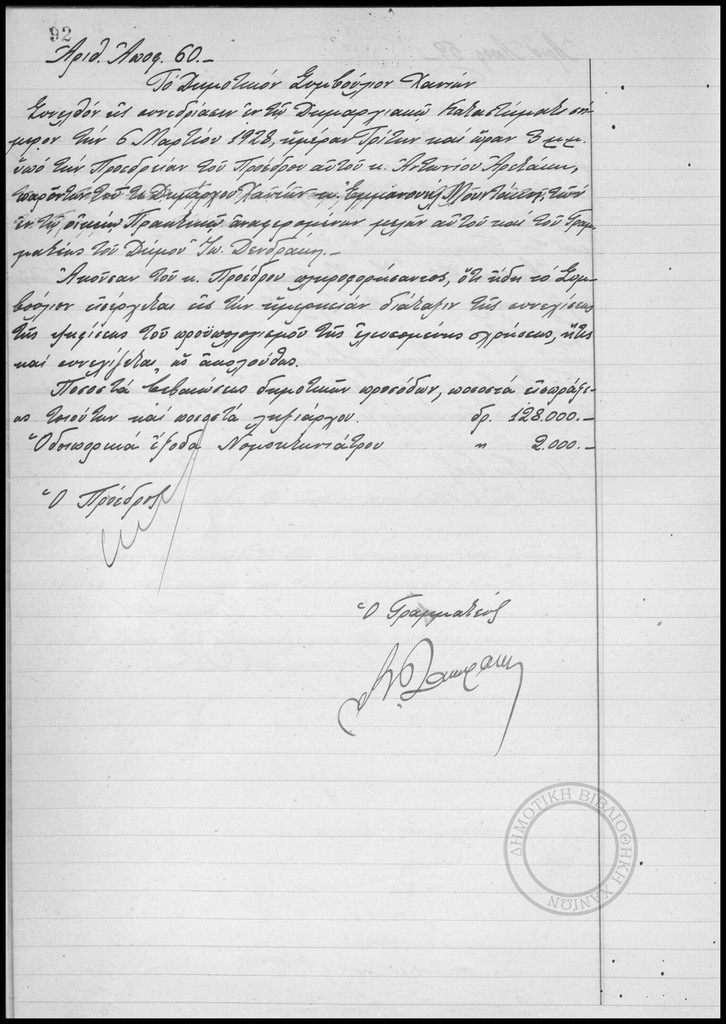 92
Ἀριθ. Ἀποφ. 60.-
Τό Δημοτικόν Συμβούλιον Χανίων
Συνελθόν εἰς συνεδρίασιν ἐν τῷ Δημαρχιακῷ Καταστήματι σή-
μερον τήν 6 Μαρτίου 1928, ἡμέραν Τρίτην καί ὥραν 3 μ.μ.
ὑπό τήν Προεδρείαν τοῦ Προέδρου αὐτοῦ κ. Ἀντωνίου
παρόντων τοῦ τε Δημάρχου Χανίων κ. Ἐμμανουήλ Μουντάκη, τῶν
ἐν τοῖς οἰκείοις Πρακτικοῖς ἀναφερομένων μελῶν αὐτοῦ καί τοῦ Γραμ-
ματέως τοῦ Δήμου Ἰω. Δενδράκη.-
Ἀκοῦσαν τοῦ κ. Προέδρου πληροφορήσαντος, ὅτι ἤδη τό Συμ-
βούλιον εἰσέρχεται εἰς τήν ἡμερησίαν διάταξιν τῆς συνεχίσεως
τῆς ψηφίσεως τοῦ προϋπολογισμοῦ τῆς ἐλευσομένης χρήσεως, ἥτις
καί συνεχίζεται ὡς ἀκολούθως.
Ποσοστά βεβαιώσεως δημοτικῶν προσόδων, ποσοστά εἰσπράξε-
ως τοιούτων καί ποσοστά ληξιάρχου. δρ. 128.000.-
Ὁδοιπορικά ἔξοδα Νομοκτηνιάτρου " 2.000.-
Ὁ Πρόεδρος
Ὁ Γραμματεύς
ΔΗΜΟΤΙΚΗ ΒΙΒΛΙΟΘΗΚΗ ΧΑΝΙΩΝ